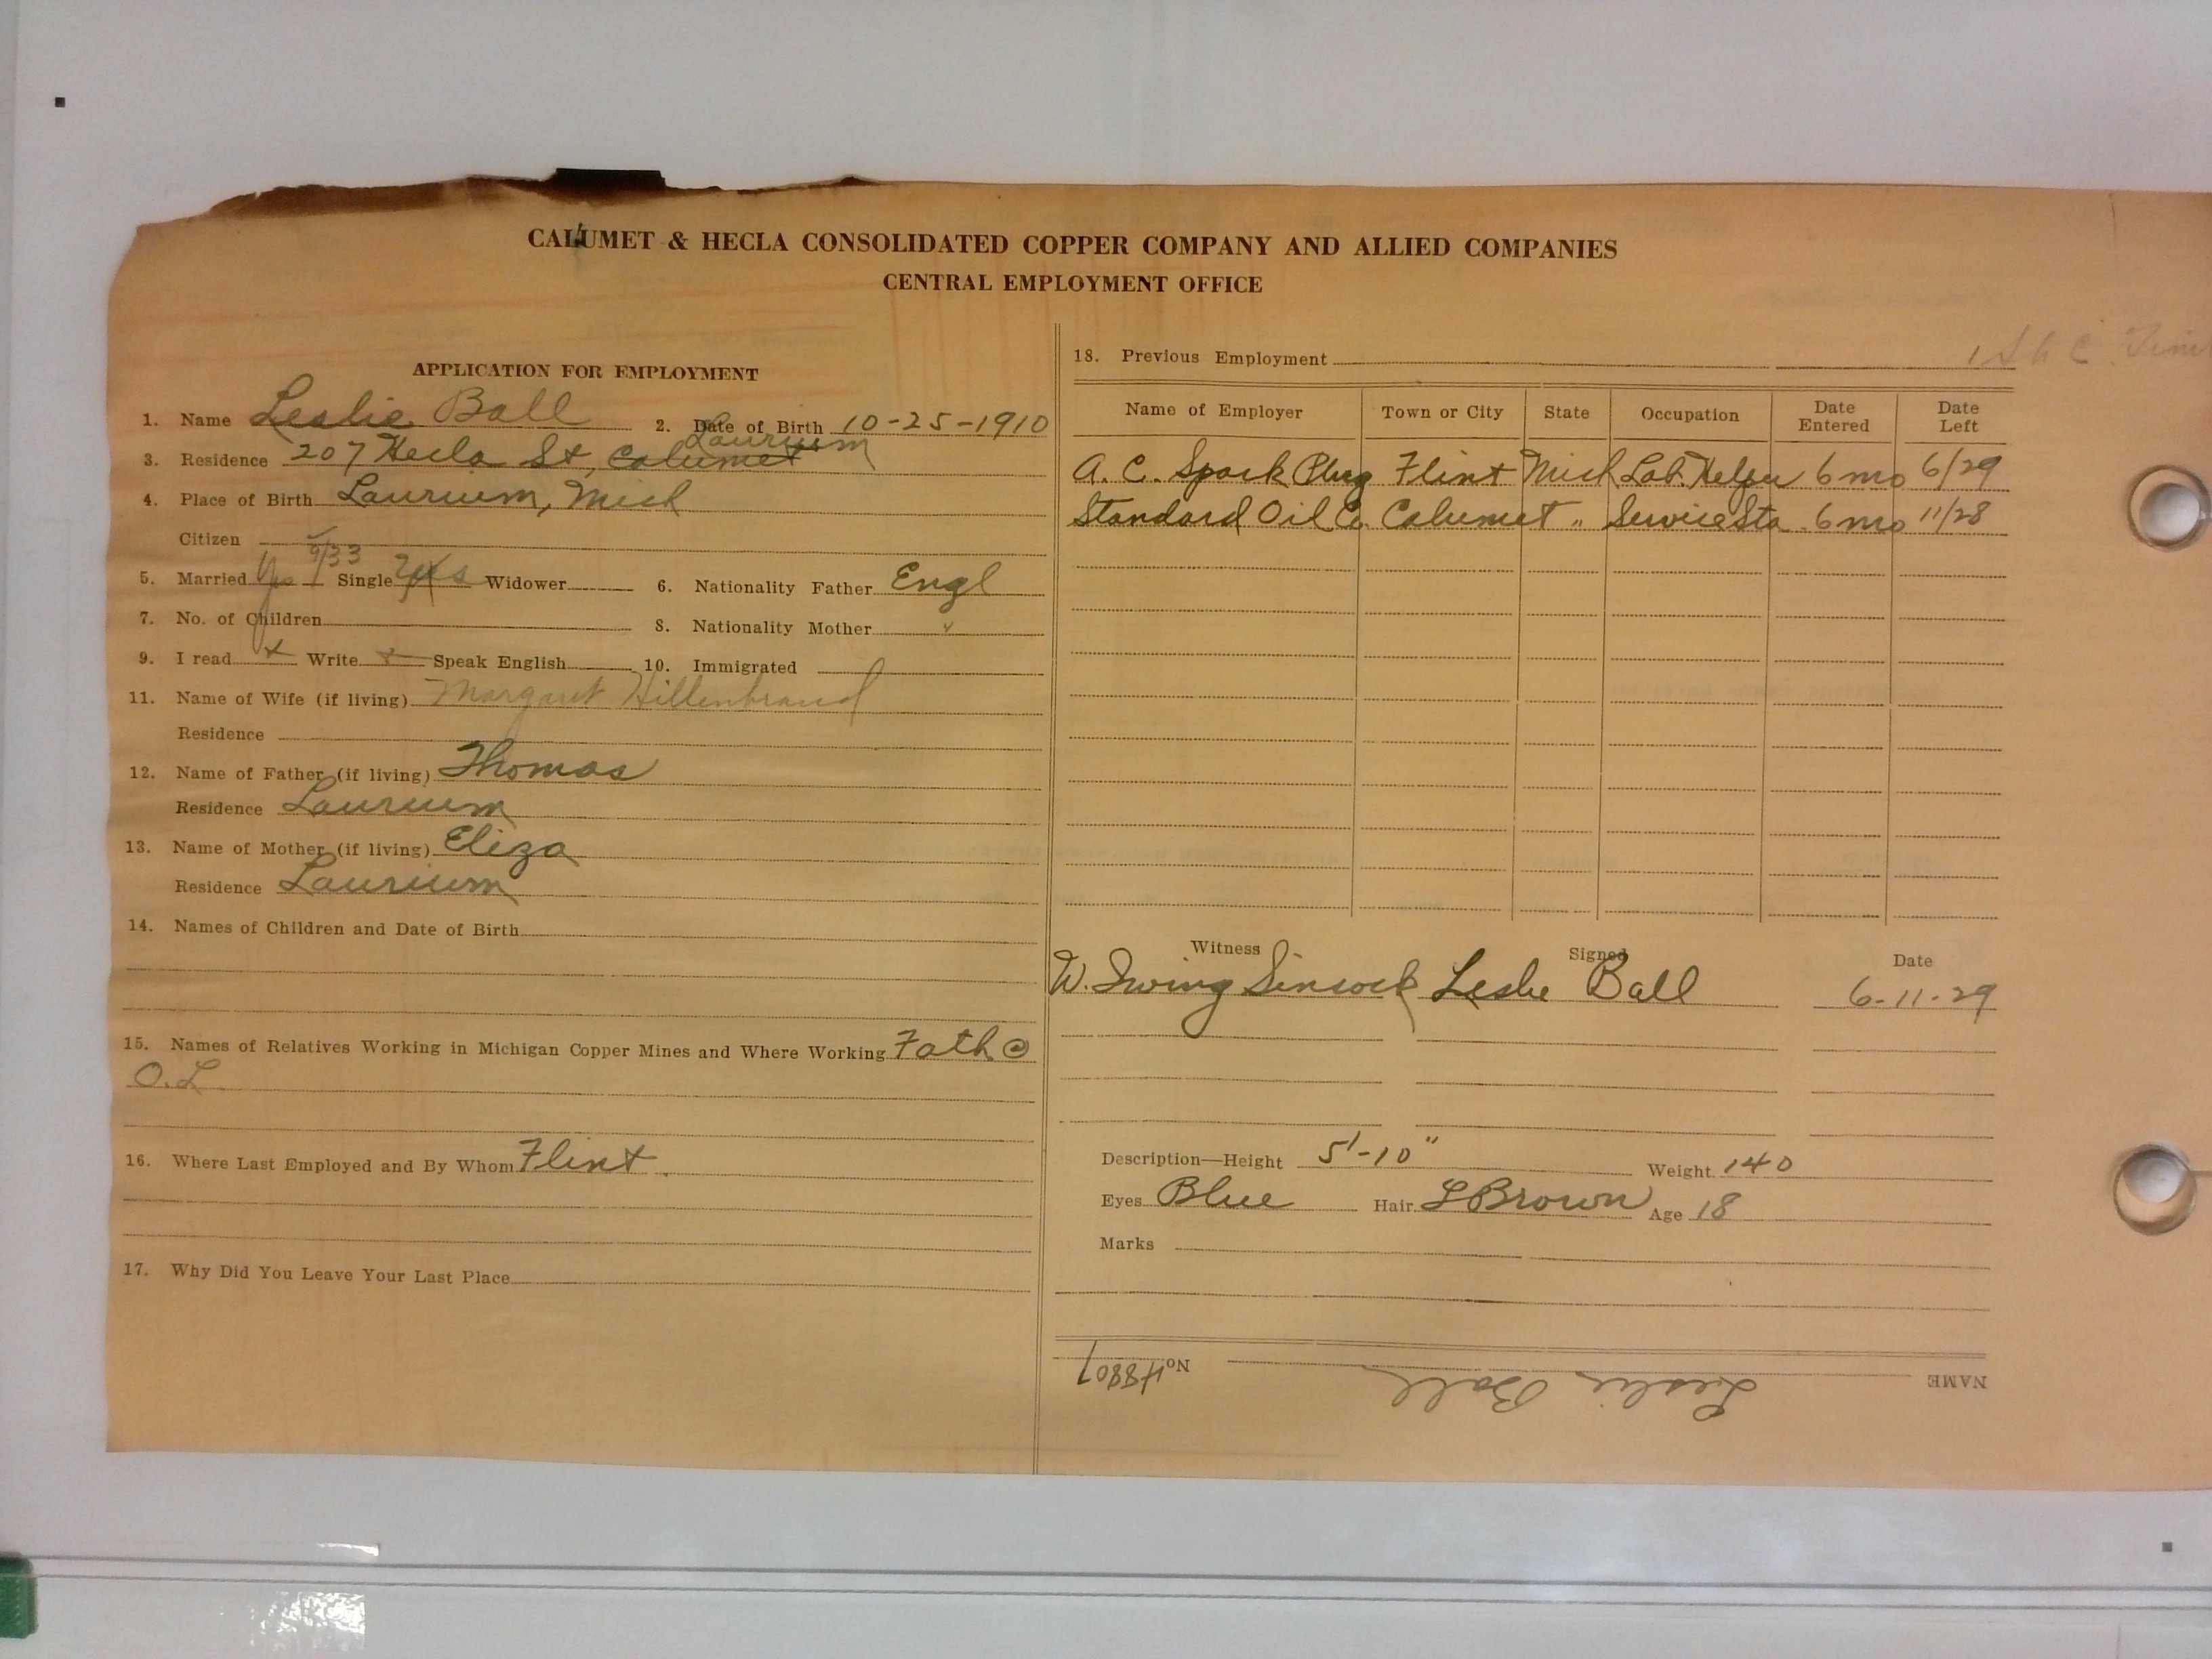 CALUMET & HECLA CONSOLIDATED COPPER COMPANY AND ALLIED COMPANIES
CENTRAL EMPLOYMENT OFFICE
APPLICATION FOR EMPLOYMENT
1. Name Leslie Ball 2. Date of Birth 10-25-1910
Laurium
3. Residence 207 Hecla St, Calumet
4. Place of Birth Laurium, Mich
Citizen
9/33
5. Married Yes Single Yes Widower 6. Nationality Father Engl
7. No. of Children 8. Nationality Mother "
9. I read x Write x Speak English 10. Immigrated
11. Name of Wife (if living) Margaret Hillenbrand
Residence
12. Name of Father (if living) Thomas
Residence Laurium
13. Name of Mother (if living) Eliza
Residence Laurium
14. Names of Children and Date of Birth
15. Names of Relatives Working in Michigan Copper Mines and Where Working Fath @
O.L.
16. Where Last Employed and By Whom Flint.
17. Why Did You Leave Your Last Place
18. Previous Employment
Name of Employer Town or City State Occupation Date Entered Date Left
A. C. Spark Plug Flint Mich Lab. Helper 6 mo 6/29
Standard Oil Co. Calumet " Service Sta. 6 mo 11/28
Witness Signed Date
W. Irving Sincock Leslie Ball 6-11-29
Description—Height 5'-10" Weight 140
Eyes Blue Hair L Brown Age 18
Marks
NAME Leslie Ball No. 48807